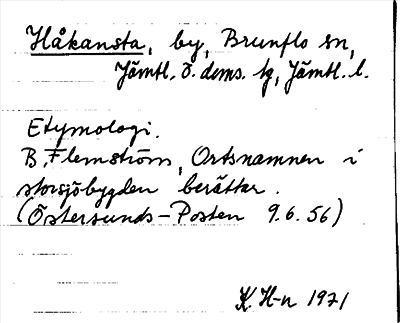 Håkansta, by, Brunflo sn,
Jämtl. ö. doms. tg, Jämtl. l.
Etymologi.
B. Flemström, Ortsnamnen i
storsjöbygden berättar.
(Östersunds-Posten 9.6.56)
K. H-n 1971